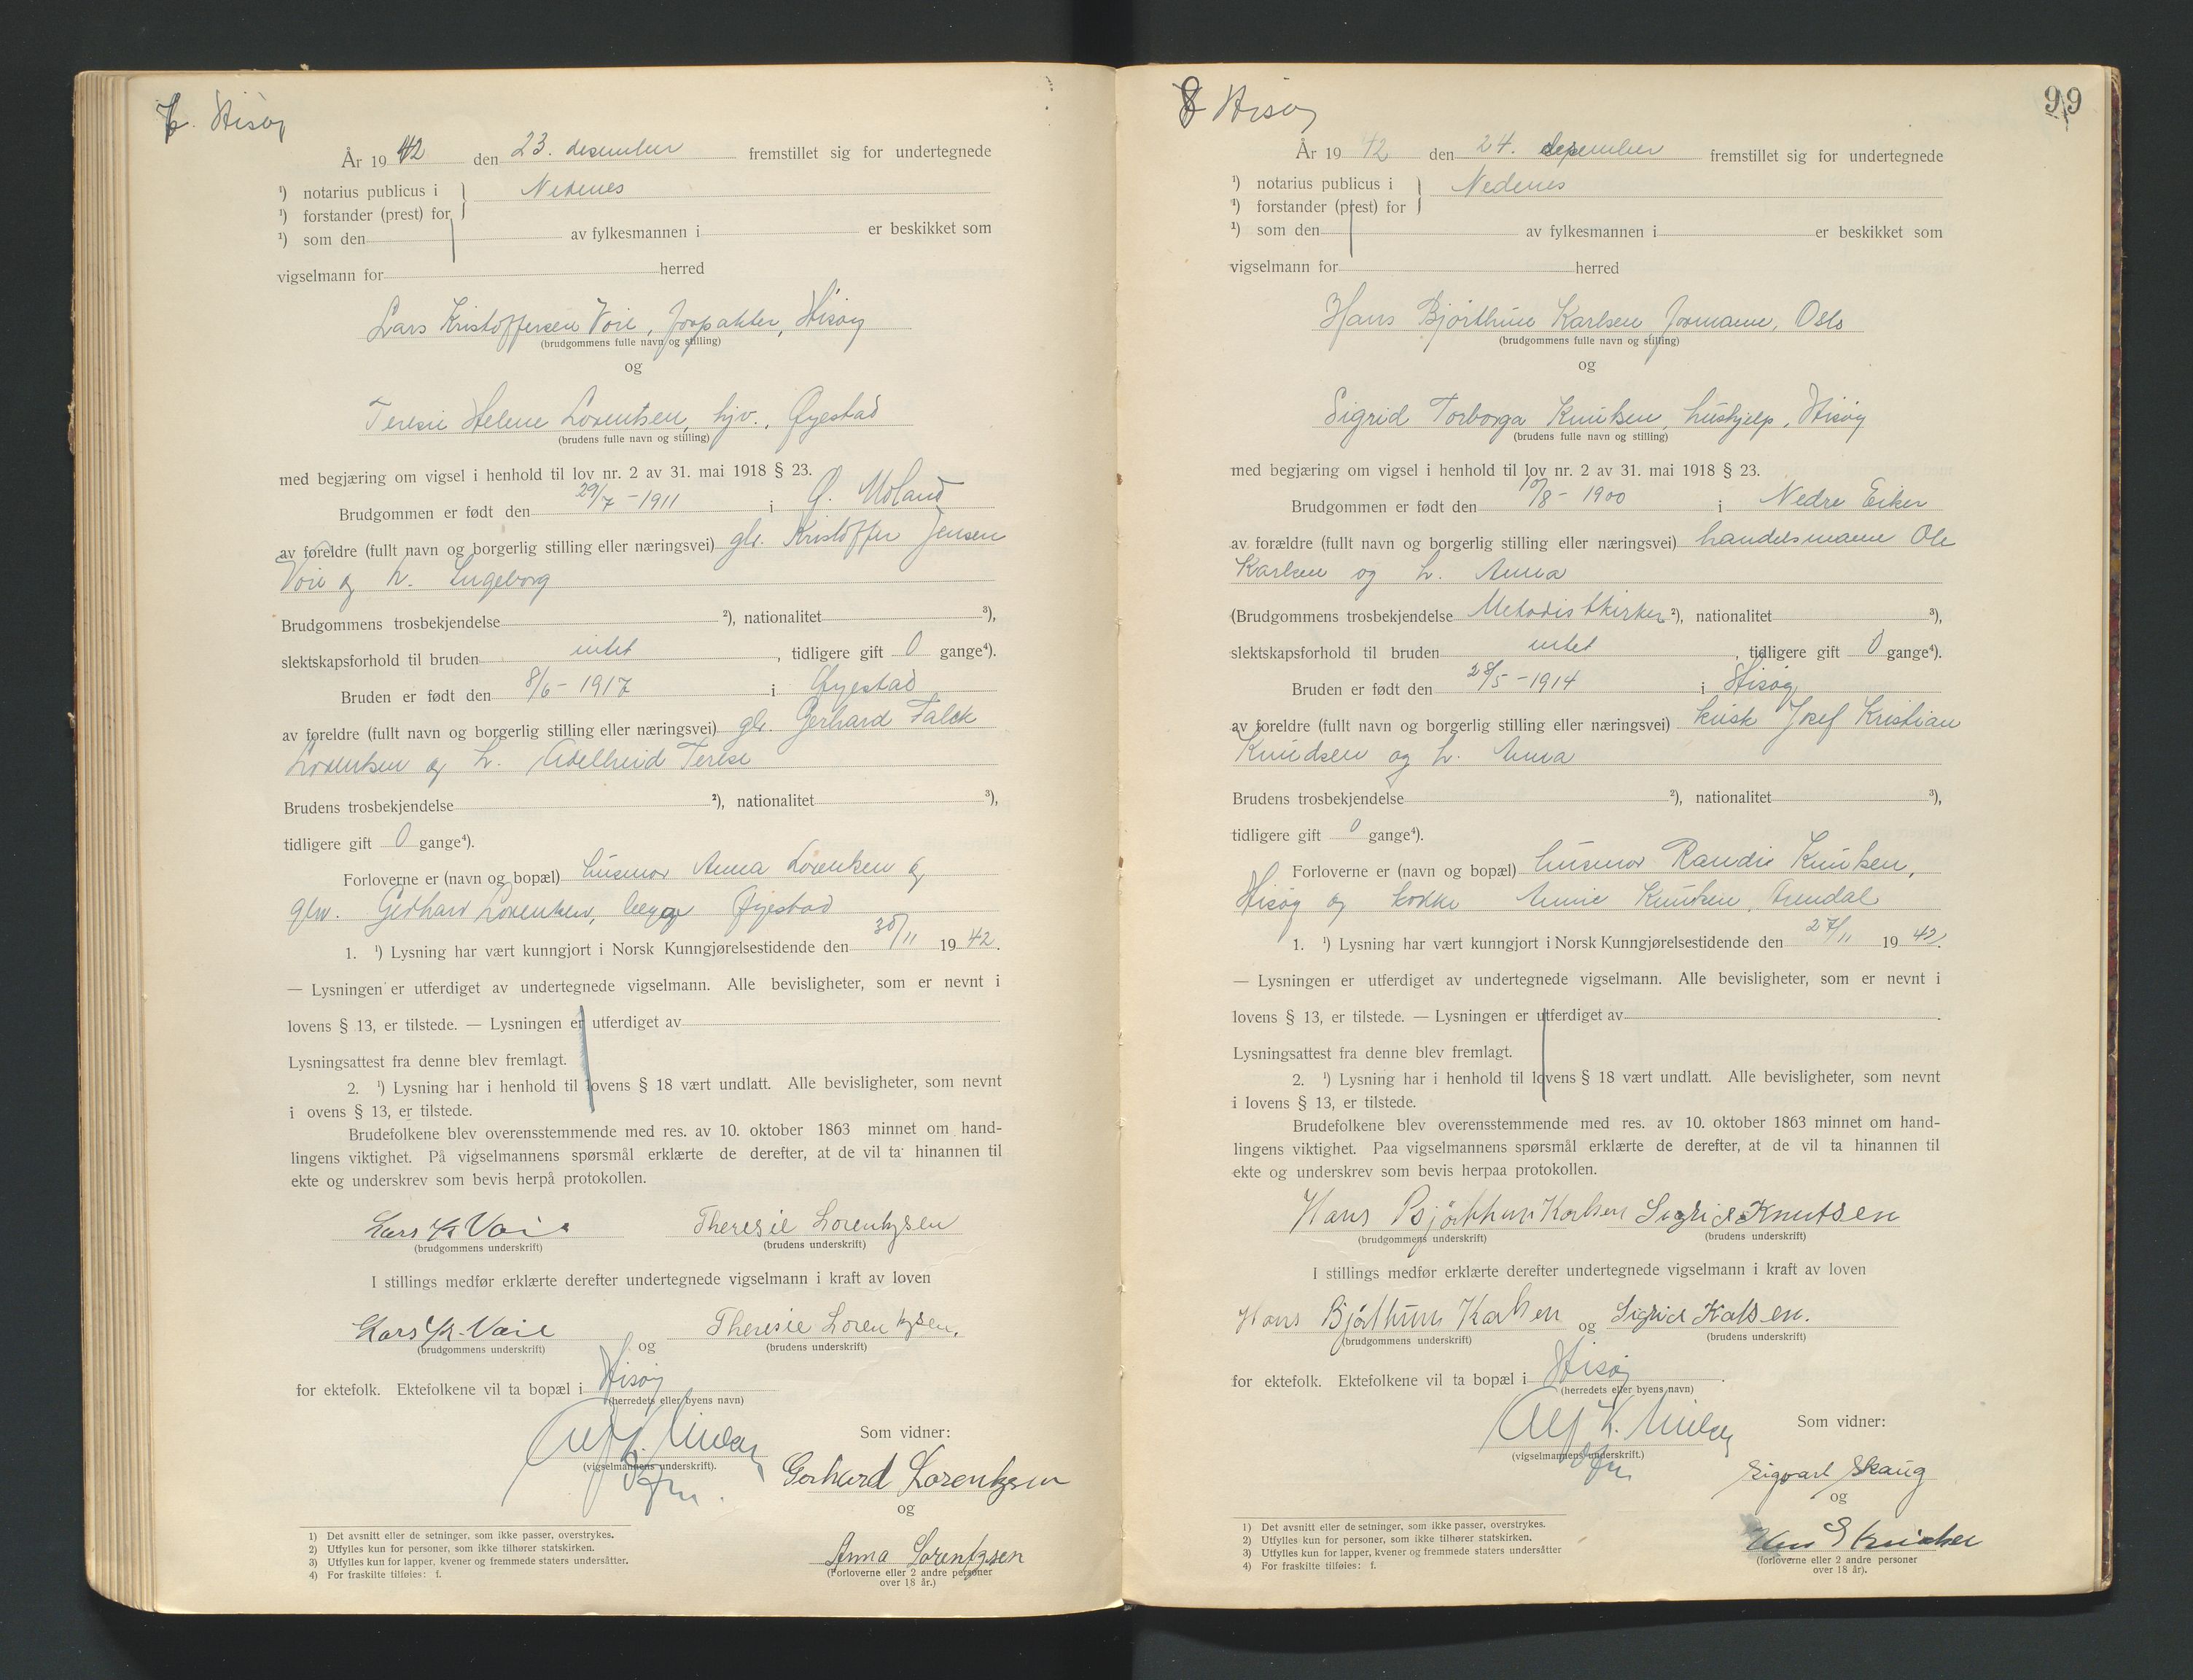 Hisøy
År 19 42 den 23. desember fremstillet sig for undertegnede
¹) notarius publicus i Nedenes
¹) forstander (prest) for
¹) som den av fylkesmannen i er beskikket som
vigselmann for herred
Lars Kristoffersen Voie, forpakter, Hisøy
(brudgommens fulle navn og stilling)
og
Teresie Helene Lorentsen, hjv., Øyestad
(brudens fulle navn og stilling)
med begjæring om vigsel i henhold til lov nr. 2 av 31. mai 1918 § 23.
Brudgommen er født den 29/7 - 1911 i Ø. Moland
av foreldre (fullt navn og borgerlig stilling eller næringsvei) Kristoffer Jensen
Voie og h. Ingeborg
Brudgommens trosbekjendelse ²), nationalitet ³),
slektskapsforhold til bruden intet, tidligere gift 0 gange⁴).
Bruden er født den 8/6 - 1917 i Øyestad
av foreldre (fullt navn og borgerlig stilling eller næringsvei) Gerhard Falck
Lorentsen og h. Adelheid Terese
Brudens trosbekjendelse ²), nationalitet ³),
tidligere gift 0 gange⁴).
Forloverne er (navn og bopæl) husmor Anna Lorentsen og
Gerhard Lorentsen, begge Øyestad
1. ¹) Lysning har vært kunngjort i Norsk Kunngjørelsestidende den 30/11 19 42.
— Lysningen er utferdiget av undertegnede vigselmann. Alle bevisligheter, som er nevnt i
lovens § 13, er tilstede. — Lysningen er utferdiget av
Lysningsattest fra denne blev fremlagt.
2. ¹) Lysning har i henhold til lovens § 18 vært undlatt. Alle bevisligheter, som nevnt
i ovens § 13, er tilstede.
Brudefolkene blev overensstemmende med res. av 10. oktober 1863 minnet om hand-
lingens viktighet. På vigselmannens spørsmål erklærte de derefter, at de vil ta hinannen til
ekte og underskrev som bevis herpå protokollen.
Lars Kr Voie Theresie Lorentzsen
(brudgommens underskrift) (brudens underskrift)
I stillings medfør erklærte derefter undertegnede vigselmann i kraft av loven
Lars Kr. Voie og Theresie Lorentzsen.
(brudgommens underskrift) (brudens underskrift)
for ektefolk. Ektefolkene vil ta bopæl i Hisøy
(herredets eller byens navn)
Som vidner:
(vigselmannens underskrift).
Gerhard Lorentzsen
og
Anna Lorentzsen
(Forloverne eller 2 andre personer
over 18 år.)
1) Det avsnitt eller de setninger, som ikke passer, overstrykes.
2) Utfylles kun for personer, som ikke tilhører statskirken.
3) Utfylles kun for lapper, kvener og fremmede staters undersåtter.
4) For fraskilte tilføies: f.
8 Hisøy
99
År 19 42 den 24. desember fremstillet sig for undertegnede
¹) notarius publicus i Nedenes
¹) forstander (prest) for
¹) som den av fylkesmannen i er beskikket som
vigselmann for herred
Hans Bjørthun Karlsen, formann, Oslo
(brudgommens fulle navn og stilling)
og
Sigrid Torborga Knutsen, hushjelp, Hisøy
(brudens fulle navn og stilling)
med begjæring om vigsel i henhold til lov nr. 2 av 31. mai 1918 § 23.
Brudgommen er født den 10/8 - 1900 i Nedre Eiker
av forældre (fullt navn og borgerlig stilling eller næringsvei) handelsmann Ole
Karlsen og h. Anna
(Brudgommens trosbekjendelse Metodistkirken ²), nationalitet ³),
slektskapsforhold til bruden intet, tidligere gift 0 gange⁴).
Bruden er født den 28/5 - 1914 i Hisøy
av foreldre (fullt navn og borgerlig stilling eller næringsvei) kusk Josef Kristian
Knudsen og h. Anna
Brudens trosbekjendelse ²), nationalitet ³),
tidligere gift 0 gange⁴).
Forloverne er (navn og bopæl) husmor Randie Knutsen,
Hisøy og kokke Annie Knutsen, Arendal
1. ¹) Lysning har vært kunngjort i Norsk Kunngjørelsestidende den 27/11 19 42.
— Lysningen er utferdiget av undertegnede vigselmann. Alle bevisligheter, som er nevnt i
lovens § 13, er tilstede. — Lysningen er utferdiget av
Lysningsattest fra denne blev fremlagt.
2. ¹) Lysning har i henhold til lovens § 18 vært undlatt. Alle bevisligheter, som nevnt
i lovens § 13, er tilstede.
Brudefolkene blev overensstemmende med res. av 10. oktober 1863 minnet om hand-
lingens viktighet. Paa vigselmannens spørsmål erklærte de derefter, at de vil ta hinannen til
ekte og underskrev som bevis herpaa protokollen.
Hans Bjørthun Karlsen Sigrid Knutsen
(brudgommens underskrift) (brudens underskrift)
I stillings medfør erklærte derefter undertegnede vigselmann i kraft av loven
Hans Bjørthun Karlsen og Sigrid Kalsen.
(brudgommens underskrift) (brudens underskrift)
for ektefolk. Ektefolkene vil ta bopæl i Hisøy
(herredets eller byens navn)
Som vidner:
(vigselmannens underskrift.)
Sigvart Skaug
og
(forloverne eller 2 andre personer
over 18 år).
1) Det avsnitt eller de setninger, som ikke passer, overstrykes.
2) Utfylles kun for personer, som ikke tilhører statskirken.
3) Utfylles kun for lapper, kvener og fremmede staters undersåtter
4) For fraskilte tilføies: f.